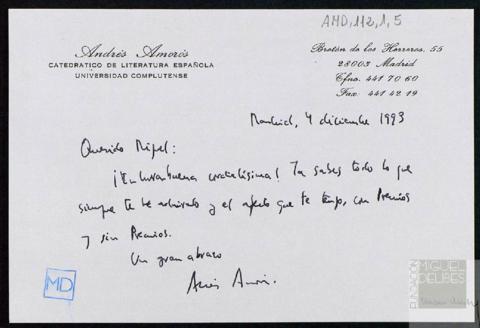 AMD, 112, 1, 5
Andrés Amorós
CATEDRATICO DE LITERATURA ESPAÑOLA
UNIVERSIDAD COMPLUTENSE
Bretón de los Herreros, 55
28003 Madrid
Tfno. 441 70 60
Fax 441 42 19
Madrid, 4 diciembre 1993
Querido Miguel:
¡Enhorabuena cordialísima! Tú sabes todo lo que
siempre te he admirado y el afecto que te tengo, con Premios
y sin Premios.
Un gran abrazo
Andrés Amorós.
MD
FUNDACIÓN
MIGUEL
DELIBES